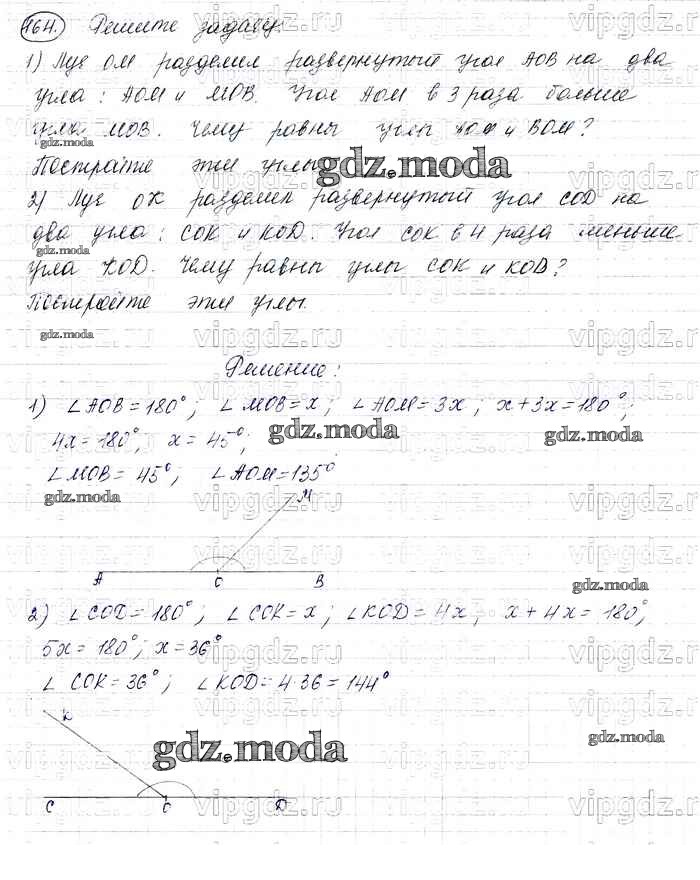 164. Решите задачу:
1) Луч ОМ разделил развернутый угол АОВ на два
угла: АОМ и МОВ. Угол АОМ в 3 раза больше
угла МОВ. Чему равны углы АОМ и ВОМ?
gdz.moda
Постройте эти углы.
gdz.moda
2) Луч ОК разделил развернутый угол COD на
два угла: СОК и KOD. Угол СОК в 4 раза меньше
gdz.moda
угла KOD. Чему равны углы СОК и КОВ?
Постройте эти углы.
gdz.moda
Решение:
1) ∠AOB=180°; ∠MOB=x; ∠AOM=3x; x+3x=180°;
4x=180°; x=45°;
gdz.moda
gdz.moda
∠MOB=45°; ∠AOM=135°
gdz.moda
M
A O B
gdz.moda
2) ∠COD=180°; ∠COK=x; ∠KOD=4x; x+4x=180°;
5x=180°; x=36°
∠COK=36°; ∠KOD=4·36=144°
K
gdz.moda
gdz.moda
C O D
vipgdz.ru